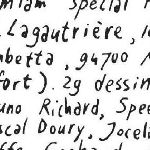 Special
Lagautrière, 1
mbetta, 94700 M
fort). 29 dessin
uno Richard, Spee
scal Doury, Joceli